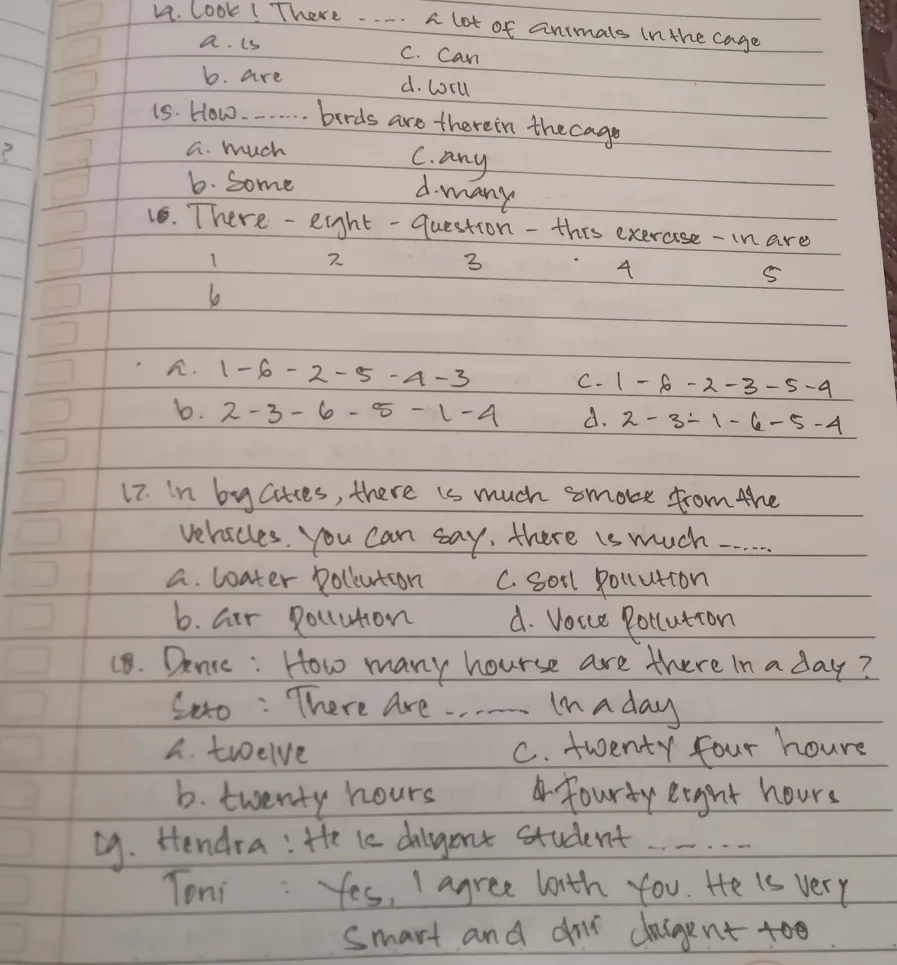 14. Look! There ..... a lot of animals in the cage
a. is c. can
b. are d. will
15. How........ birds are therein the cage
a. much c. any
b. Some d. many
16. There - eight - question - this exercise - in are
1 2 3 4 5
6
a. 1-6-2-5-4-3 c. 1-6-2-3-5-4
b. 2-3-6-5-1-4 d. 2-3-1-6-5-4
17. In big cities, there is much smoke from the
vehicles. You can say, there is much ......
a. water pollution c. soil pollution
b. air pollution d. Voice pollution
18. Denic : How many hourse are there in a day?
Seto : There are ........ In a day
a. twelve c. twenty four hours
b. twenty hours d fourty eight hours
19. Hendra : He is diligent student .......
Toni : Yes, I agree with you. He is very
smart and diligent too
?